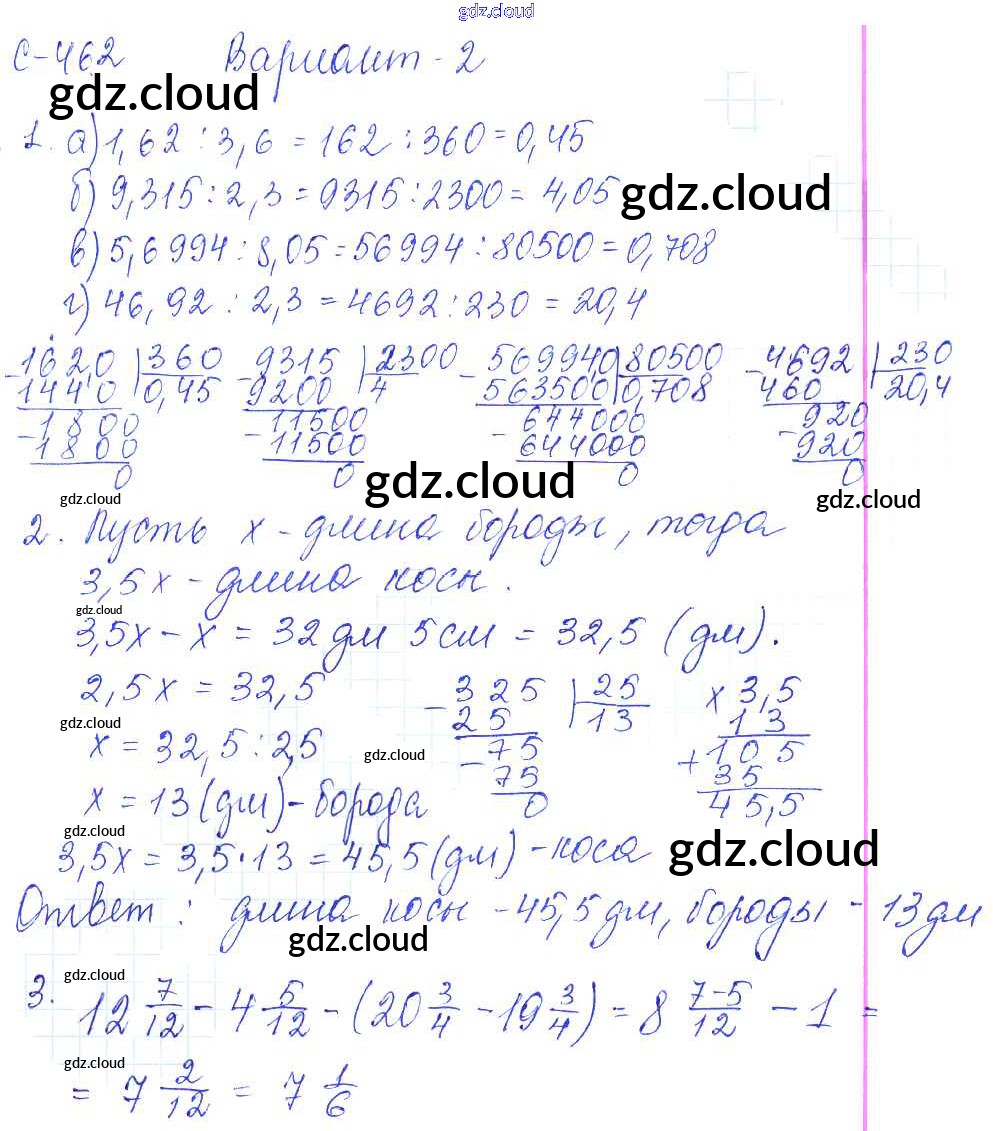 gdz.cloud
С-462 Вариант-2
gdz.cloud
1. а) 1,62 : 3,6 = 162 : 360 = 0,45
б) 9,315 : 2,3 = 9315 : 2300 = 4,05
gdz.cloud
в) 5,6994 : 8,05 = 56994 : 80500 = 0,708
г) 46,92 : 2,3 = 4692 : 230 = 20,4
-1620 | 360 -9315 | 2300 - 569940 | 80500 -4692 | 230
1440 | 0,45 9200 | 4 563500 | 0,708 460 | 20,4
-1800 11500 644000 920
1800 -11500 -644000 -920
0 0 0 0
gdz.cloud gdz.cloud gdz.cloud gdz.cloud
2. Пусть х - длина бороды, тогда
3,5х - длина косы.
gdz.cloud
3,5х - х = 32 дм 5 см = 32,5 (дм).
2,5х = 32,5 - 325 | 25 х 3,5
gdz.cloud 25 | 13 13
х = 32,5 : 2,5 - 75 + 105
gdz.cloud 75 35
х = 13 (дм) - борода 0 45,5
gdz.cloud
3,5х = 3,5 · 13 = 45,5 (дм) - коса gdz.cloud
Ответ: длина косы - 45,5 дм, бороды - 13 дм
gdz.cloud
gdz.cloud
3. 12 7/12 - 4 5/12 - (20 3/4 - 19 3/4) = 8 7-5/12 - 1 =
gdz.cloud
= 7 2/12 = 7 1/6